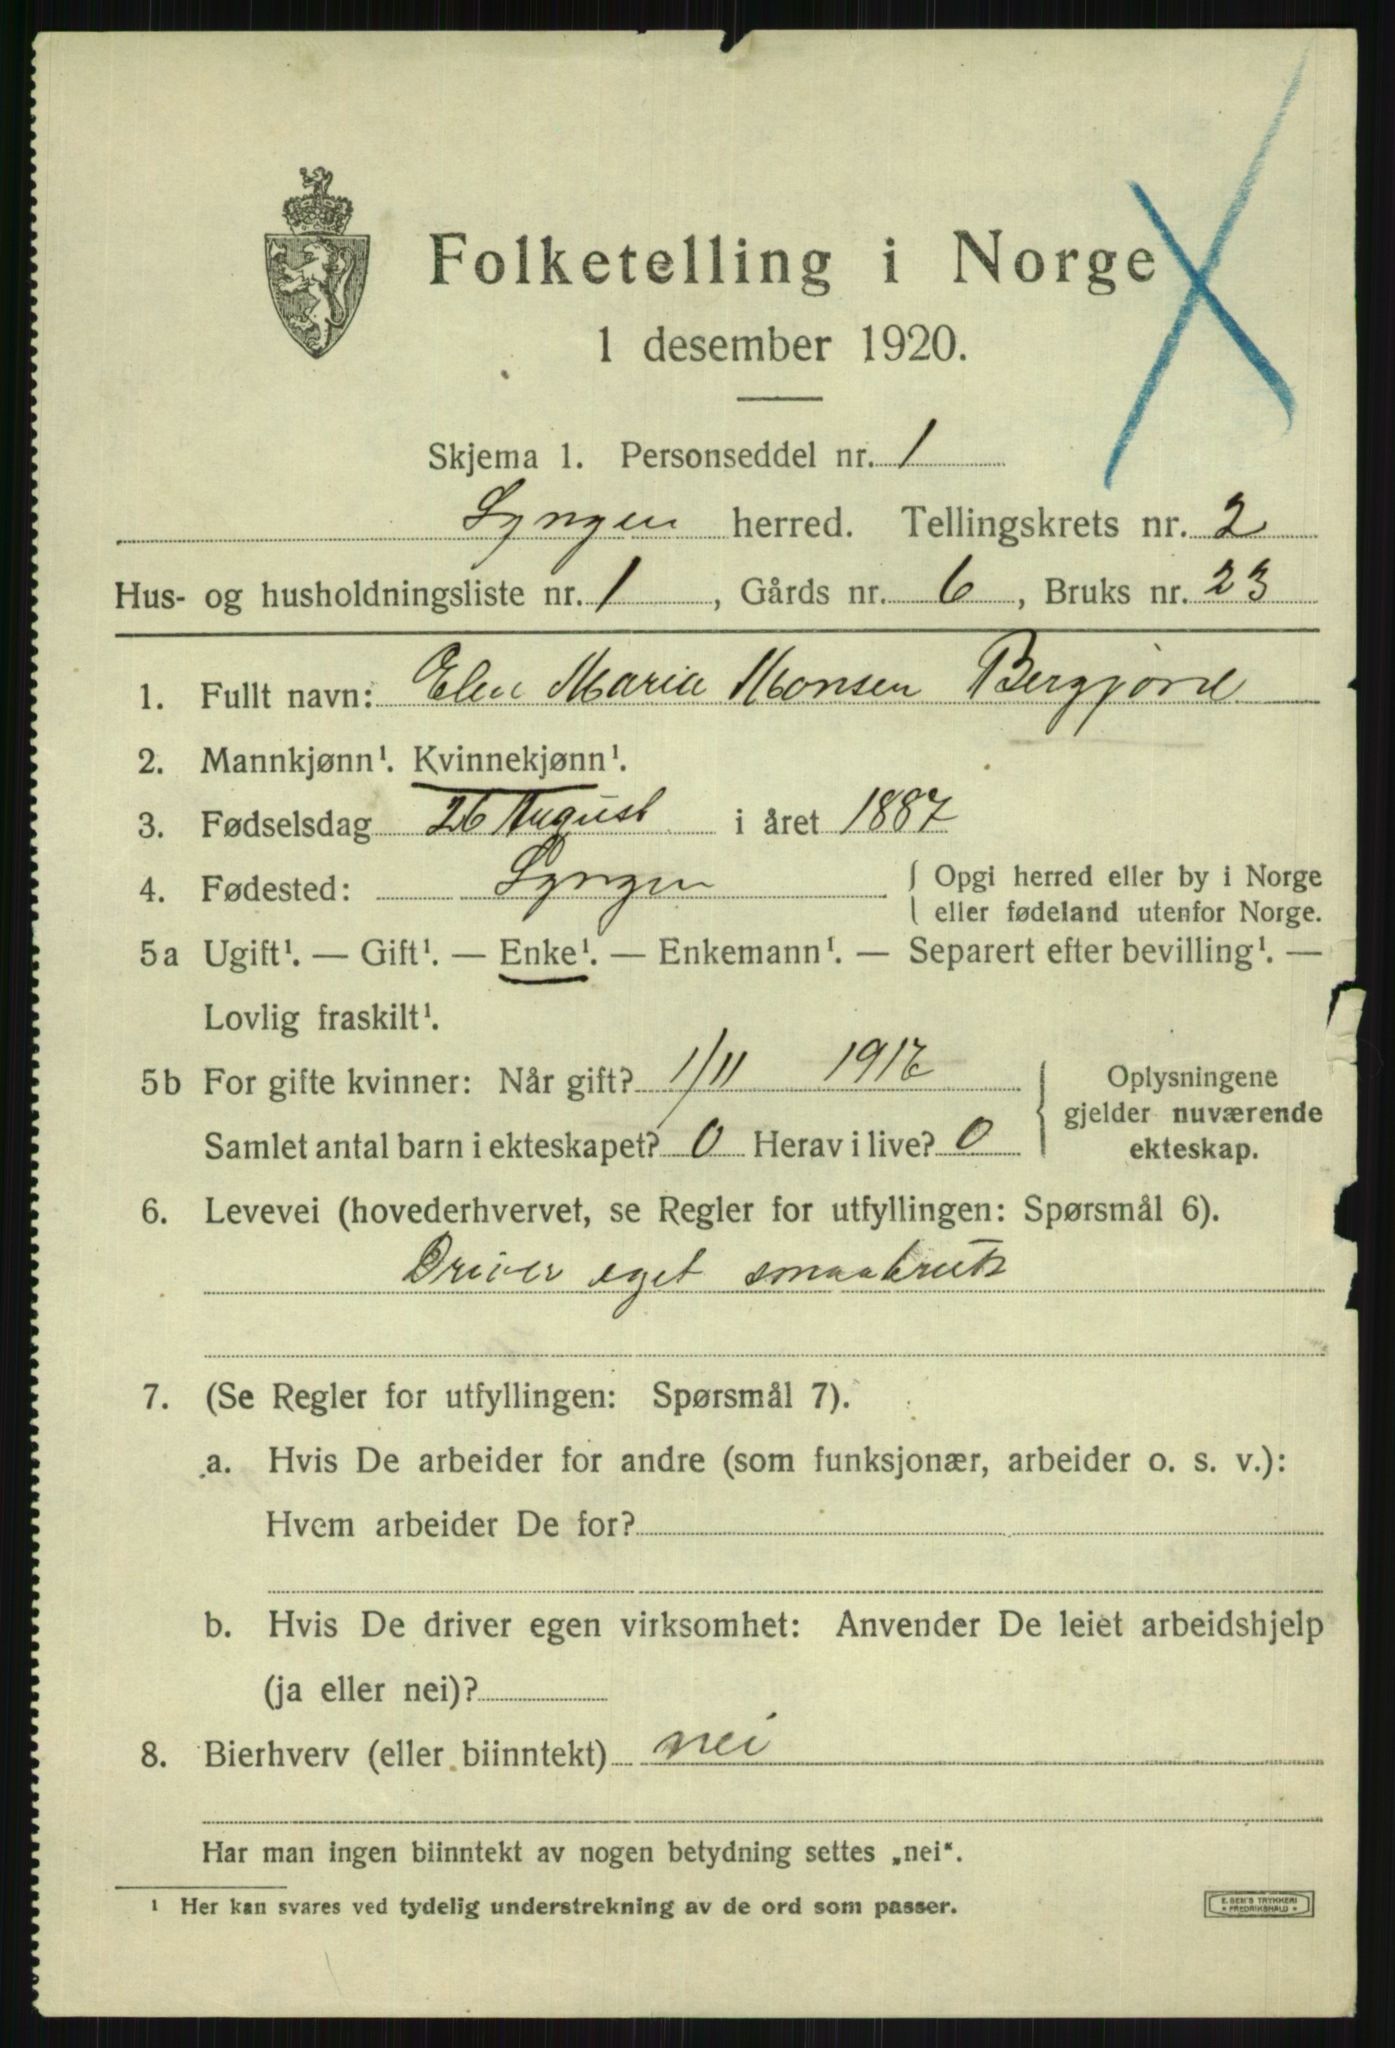 Folketelling i Norge
1 desember 1920.
Skjema 1. Personseddel nr. 1
Lyngen herred. Tellingskrets nr. 2
Hus- og husholdningsliste nr. 1, Gårds nr. 6, Bruks nr. 23
1. Fullt navn: Elen Maria Monsen Bergjord
2. Mannkjønn¹. Kvinnekjønn¹.
3. Fødselsdag 26 August i året 1887
4. Fødested: Lyngen { Opgi herred eller by i Norge
eller fødeland utenfor Norge.
5a Ugift¹. — Gift¹. — Enke¹. — Enkemann¹. — Separert efter bevilling¹. —
Lovlig fraskilt¹.
5b For gifte kvinner: Når gift? 1/11 1916
Samlet antal barn i ekteskapet? 0 Herav i live? 0
Oplysningene
gjelder nuværende
ekteskap.
6. Levevei (hovederhvervet, se Regler for utfyllingen: Spørsmål 6).
Driver eget smaabruk
7. (Se Regler for utfyllingen: Spørsmål 7).
a. Hvis De arbeider for andre (som funksjonær, arbeider o. s. v.):
Hvem arbeider De for?
b. Hvis De driver egen virksomhet: Anvender De leiet arbeidshjelp
(ja eller nei)?
8. Bierhverv (eller biinntekt) nei
Har man ingen biinntekt av nogen betydning settes „nei“.
¹ Her kan svares ved tydelig understrekning av de ord som passer.
E. SEM'S TRYKKERI
* FREDRIKSHALD *